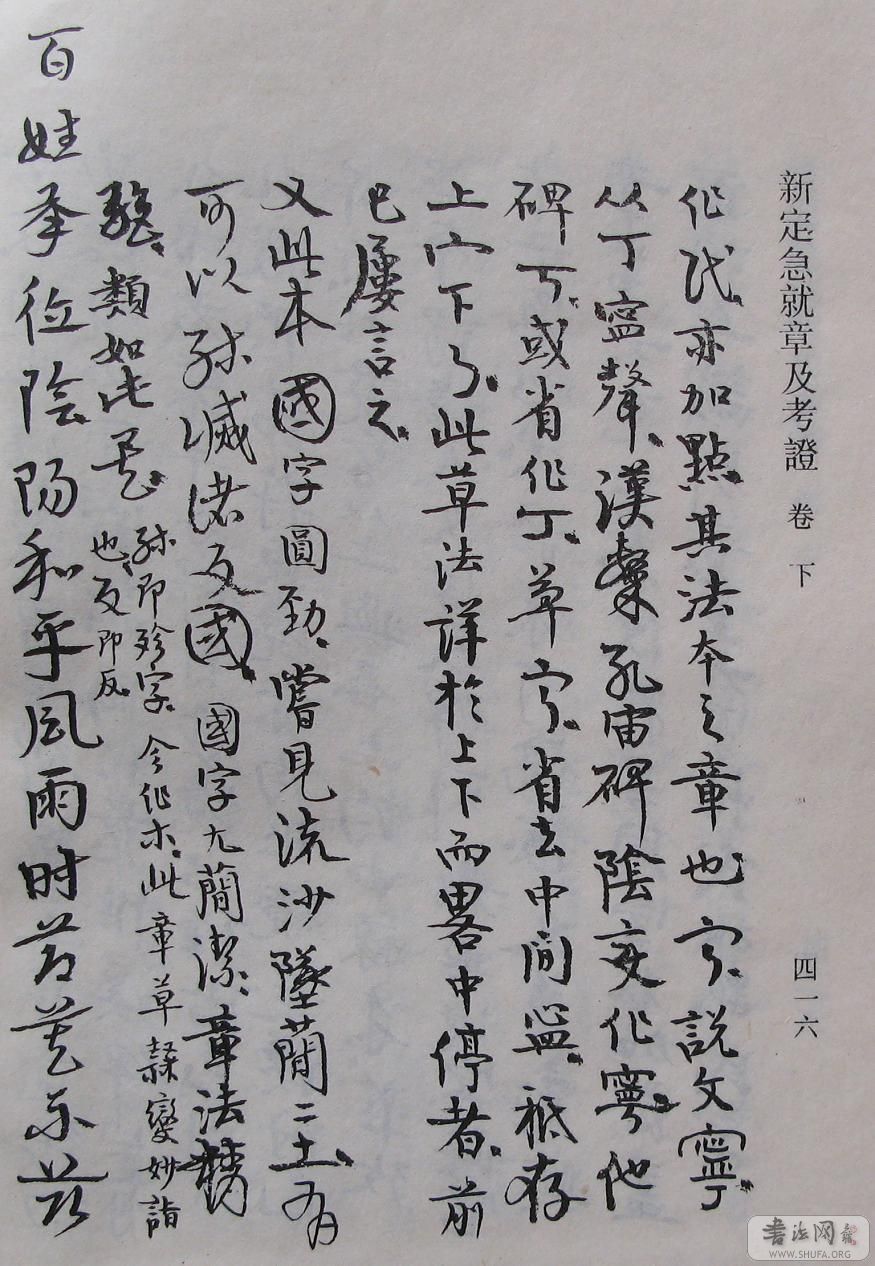 新定急就章及考證 卷下 四一六
作代亦加點其法本之章也宁說文寧
从丁寍聲漢隸孔宙碑陰变作寧他
碑丁或省作丁草宁省去中間皿袛存
上宀下丂此草法詳於上下而畧中停者前
已屢言之
又此本國字圓勁嘗見流沙墜簡二土
可以殄滅諸反國國字尤簡潔章法
類如此
殄即殄字今作木此章草隸變妙詣
也反即反
百姓承位陰陽和平風雨时
書法网
WWW.SHUFA.ORG